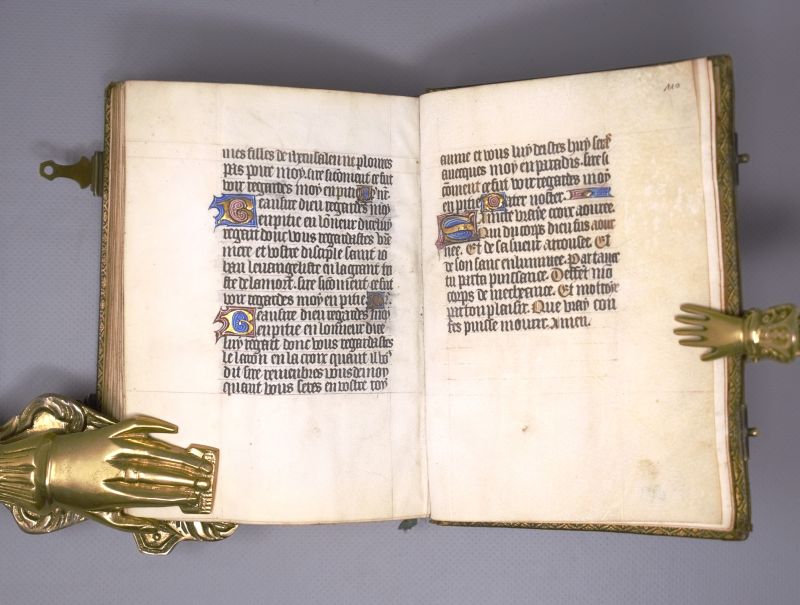 mes filles de iherusalem ne ploures
pas pour moy. sire si coment ce fut
voir regardes moy en pitie
eau sire dieu regardes moy
en pitie en lõneur diceluy
regart donc vous regardastes vr̃e
mere et vostre disciple saint io
han leuangeliste en la grant
de la mort. sire si coment ce fut
voir regardes moy en pitie
Beau sire dieu regardes moy
en pitie en lonneur dice
luy regart donc vous regardastes
le laron en la croix quant il
dit sire remembres vous de moy
quant vous seres en vostre
110
aume et vous luy deistes huy seras
auecques moy en paradis. sire si
cõment ce fut voir regardes moy
en pitie. Pater noster.
Sainte vraye croix aouree.
Qui du corps dieu fus aour
nee. Et de sa sueur arrousee. Et
de son sanc enluminee. Par ta uer
tu par ta puissance. Deffent mõ
corps de mescheance. Et moctroye
par ton plaisir. Que vray con
fes puisse mourir. Amen.